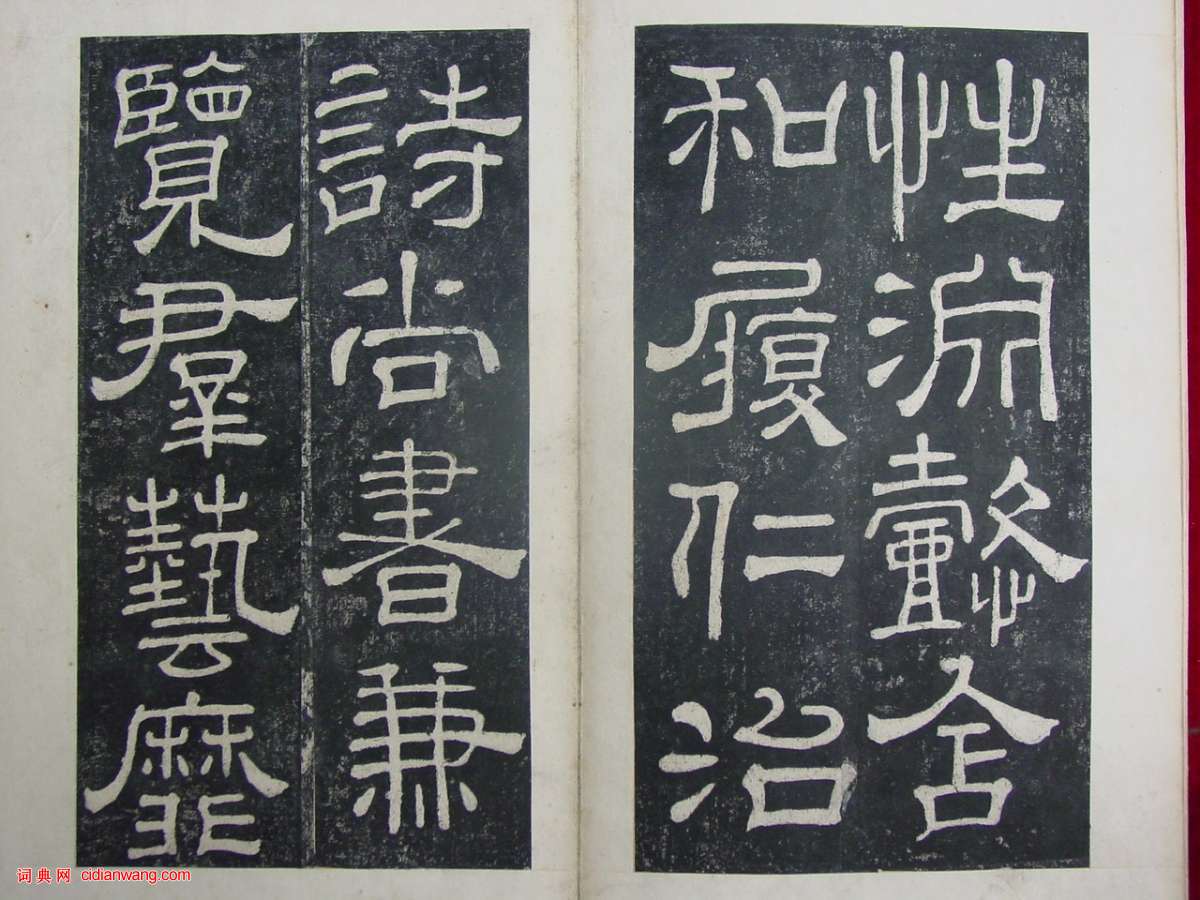 性淵懿含
和履仁治
詩尚書兼
覽羣藝靡
词典网 cidianwang.com